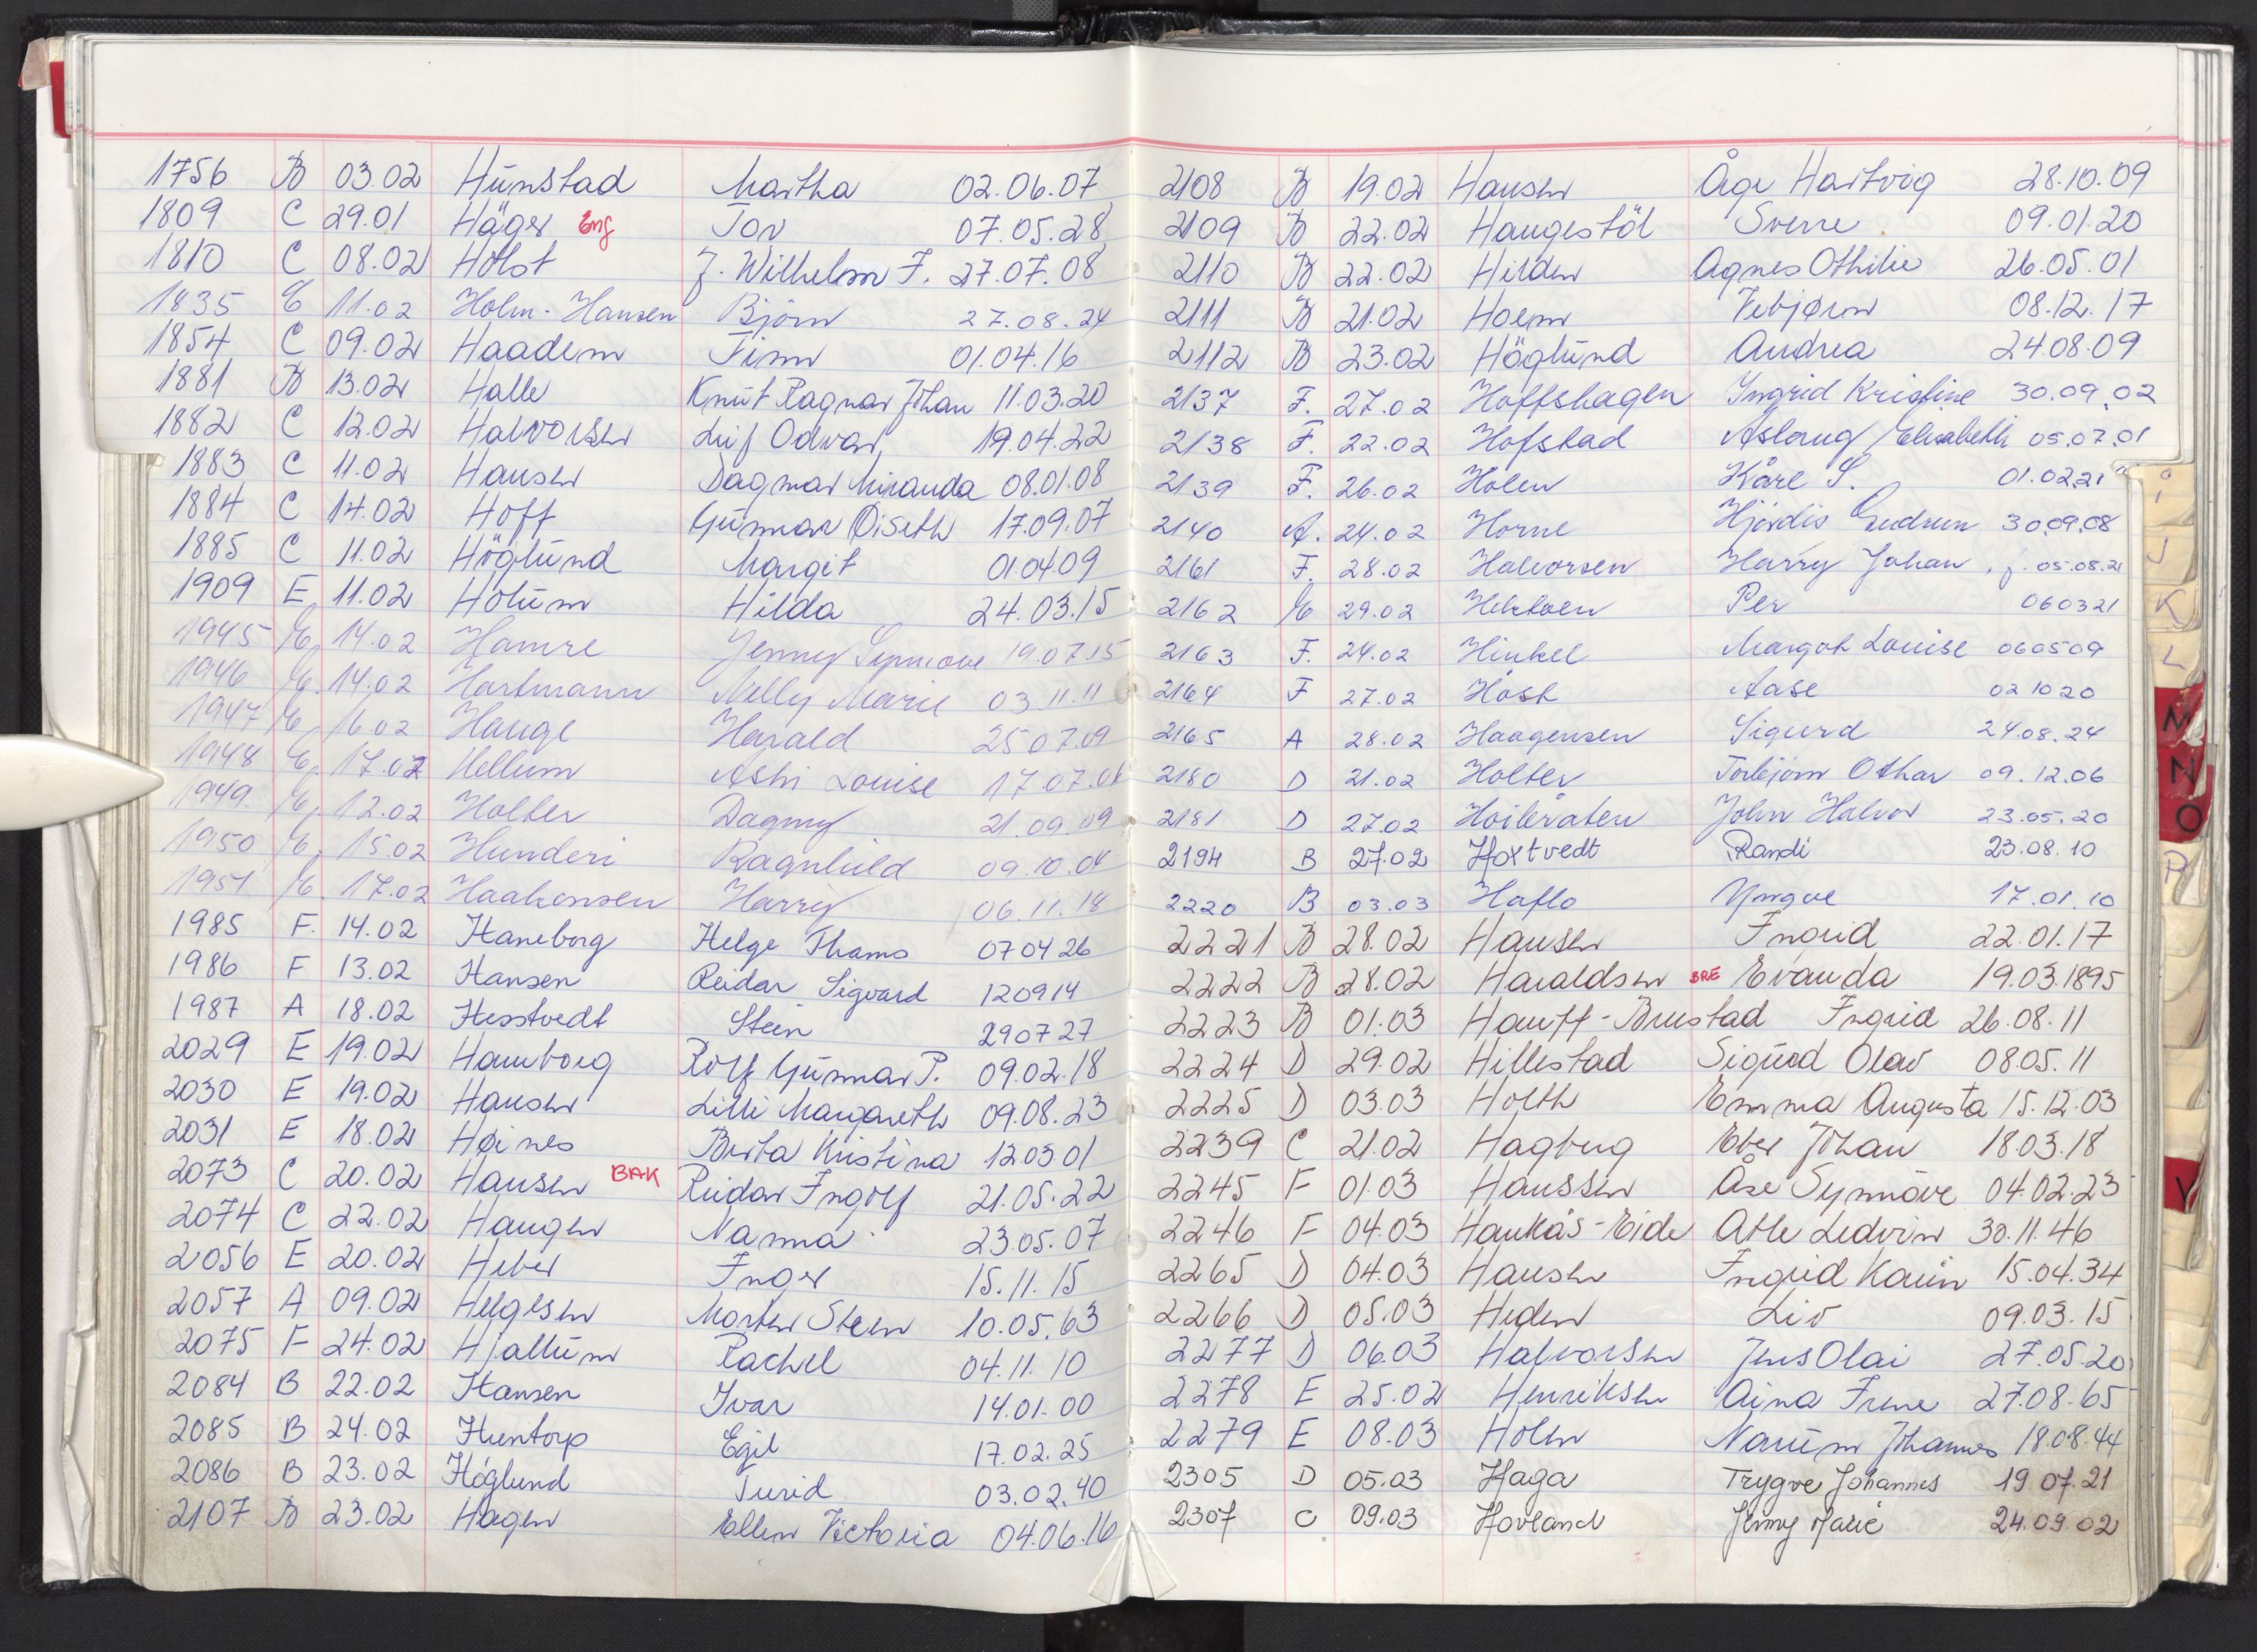 1756 B 03.02 Hunstad Martha 02.06.07
1809 C 29.01 Häger Eng Tor 07.05.28
1810 C 08.02 Holst J. Wilhelm F. 27.07.08
1835 E 11.02 Holm-Hansen Bjørn 27.08.24
1854 C 09.02 Haadem Finn 01.04.16
1881 B 13.02 Halle Knut Ragnar Johan 11.03.20
1882 C 12.02 Halvorsen Leif Odvar 19.04.22
1883 C 11.02 Hansen Dagmar Miranda 08.01.08
1884 C 14.02 Hoff Gunnar Øiseth 17.09.07
1885 C 11.02 Höglund Margit 01.04.09
1909 E 11.02 Holum Hilda 24.03.15
1945 E. 14.02 Hamre Jenny Synnøve 19.07.15
1946 E. 14.02 Hartmann Nelly Marie 03.11.11
1947 E. 16.02 Hauge Harald 25.07.09
1948 E. 17.02 Hellum Louise
1949 E. 12.02 Holter Dagny 21.09.09
1950 E. 15.02 Hunderi Ragnhild
1951 E. 17.02 Haakonsen Harry 06.11.18
1985 F. 14.02 Haneborg Helge Thams 07 04 26
1986 F 13.02 Hansen Reidar Sigvard 120914
1987 A 18.02 Hesstvedt Stein 290727
2029 E 19.02 Hamborg Rolf Gunnar P. 09.02.18
2030 E 19.02 Hansen Lilli Margareth 09.08.23
2031 E 18.02 Høines Berta Kristina 120301
2073 C 20.02 Hansen BAK Reidar Ingolf 21.05.22
2074 C 22.02 Haugen Nanna 23.05.07
2056 E 20.02 Heber Inger 15.11.15
2057 A 09.02 Helgesen Morten Steen 10.05.63
2075 F 24.02 Hjallum Rachel 04.11.10
2084 B 22.02 Hansen Ivar 14.01.00
2085 B 24.02 Huntorp Egil 17.02.25
2086 B 23.02 Höglund Turid 03.02.40
2107 B 23.02 Hagen Ellen Victoria 04.06.16
2108 B 19.02 Hansen Åge Hartvig 28.10.09
2109 B 22.02 Haugestøl Sverre 09.01.20
2110 B 22.02 Hilden Agnes Othilie 26.05.01
2111 B 21.02 Holm Vebjørn 08.12.17
2112 B 23.02 Höglund Andrea 24.08.09
2137 F. 27.02 Hoffshagen Yngrid Kristine 30.09.02
2138 F. 22.02 Hofstad Aslaug Elisabeth 05.07.01
2139 F. 26.02 Holen Kåre S. 01.02.21
2140 A. 24.02 Horne Hjørdis Gudrun 30.09.08
2161 F. 28.02 Halvorsen Harry Johan, j. 05.08.21
2162 E 29.02 Hektoen Per 060321
2163 F. 24.02 Hinkel Margot Louise 060509
2164 F 27.02 Høsk Aase 02 10 20
2165 A 28.02 Haagensen Sigurd 24.08.24
2180 D 21.02 Holter Torbjørn Othar 09.12.06
2181 D 27.02 Hoibråten John Halvor 23.05.20
2194 B 27.02 Hoxtvedt Randi 23.08.10
2220 B 03.03 Haflo Yngve 17.01.10
2221 B 28.02 Hansen Ingrid 22.01.17
2222 B 28.02 Haraldsen BRE Evanda 19.03.1895
2223 B 01.03 Hauff-Brustad Ingrid 26.08.11
2224 D 29.02 Hillestad Sigurd Olav 08.05.11
2225 D 03.03 Holth Emma Augusta 15.12.03
2239 C 21.02 Hagberg Eber Johan 18.03.18
2245 F 01.03 Hanssen Åse Synnøve 04.02.23
2246 F 04.03 Haukås-Eide Atle Ledvin 30.11.46
2265 D 04.03 Hansen Ingrid Karin 15.04.34
2266 D 05.03 Heden Liv 09.03.15
2277 D 06.03 Halvorsen Jens Olai 27.05.20
2278 E 25.02 Henriksen Aina Irene 27.08.65
2279 E 08.03 Holm Narum Johannes 18.08.44
2305 D 05.03 Haga Trygve Johannes 19.07.21
2307 C 09.03 Hovland Jenny Marie 24.09.02
I
J
K
L
M
N
O
P
V